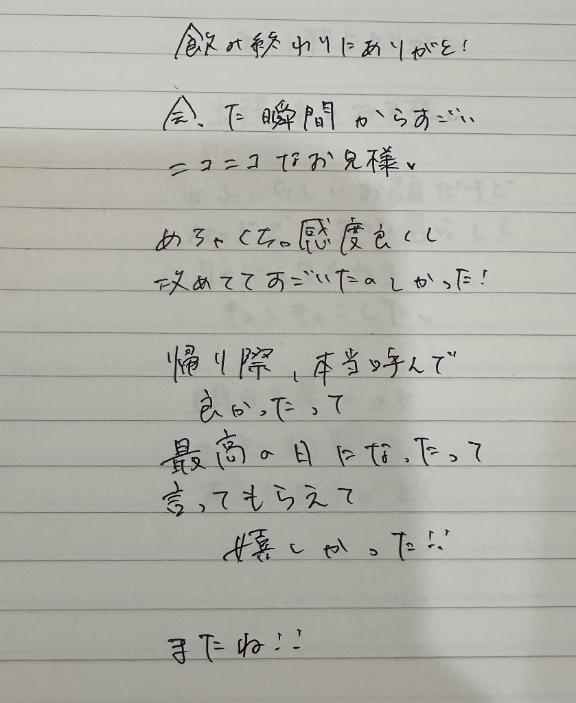 飲み終わりにありがと!
会った瞬間からすごい
ニコニコなお兄様、
めちゃくちゃ感度良くし
攻めててすごいたのしかった!
帰り際、本当呼んで
良かったって
最高の日になったって
言ってもらえて
嬉しかった!!
またね!!